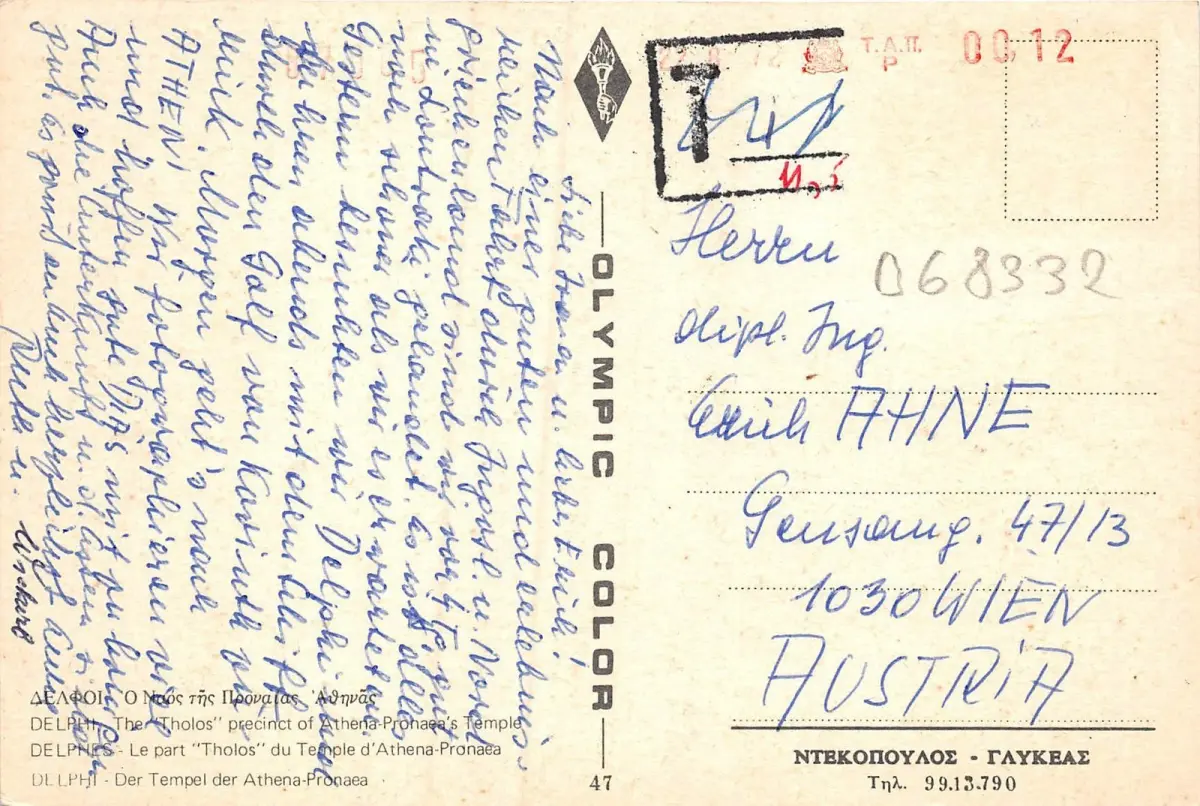 Liebe Irma u. lieber Erich!
Nach einer guten und erlebnis-
reichen Fahrt durch Jugosl. u. Nord
griechenland sind wir vor 4 T gut
in Loutraki gelandet. Es ist alles
noch schöner als wir es erwarteten.
Gestern besuchten wir Delphi und
fuhren abends mit dem Schiff
durch den Golf von Korinth
zurück. Morgen geht's nach
ATHEN! Wir fotographieren viel
und hoffen gute DIAS mit zu bringen
Auch die Unterkunft u. d. Essen
gut. Es grüsst euch herzlichst eure
u.
OLYMPIC COLOR
47
T
T.A.Π.
P
00,12
Herrn
dipl. Ing.
Erich AHNE
068332
Geusaug. 47/13
1030 WIEN
AUSTRIA
ΔΕΛΦΟΙ - Ὁ Ναὸς τῆς Προναίας Ἀθηνᾶς
DELPHI - The "Tholos" precinct of Athena-Pronaea's Temple
DELPHES - Le part "Tholos" du Temple d'Athena-Pronaea
DELPHI - Der Tempel der Athena-Pronaea
ΝΤΕΚΟΠΟΥΛΟΣ - ΓΛΥΚΕΑΣ
Τηλ. 99.13.790